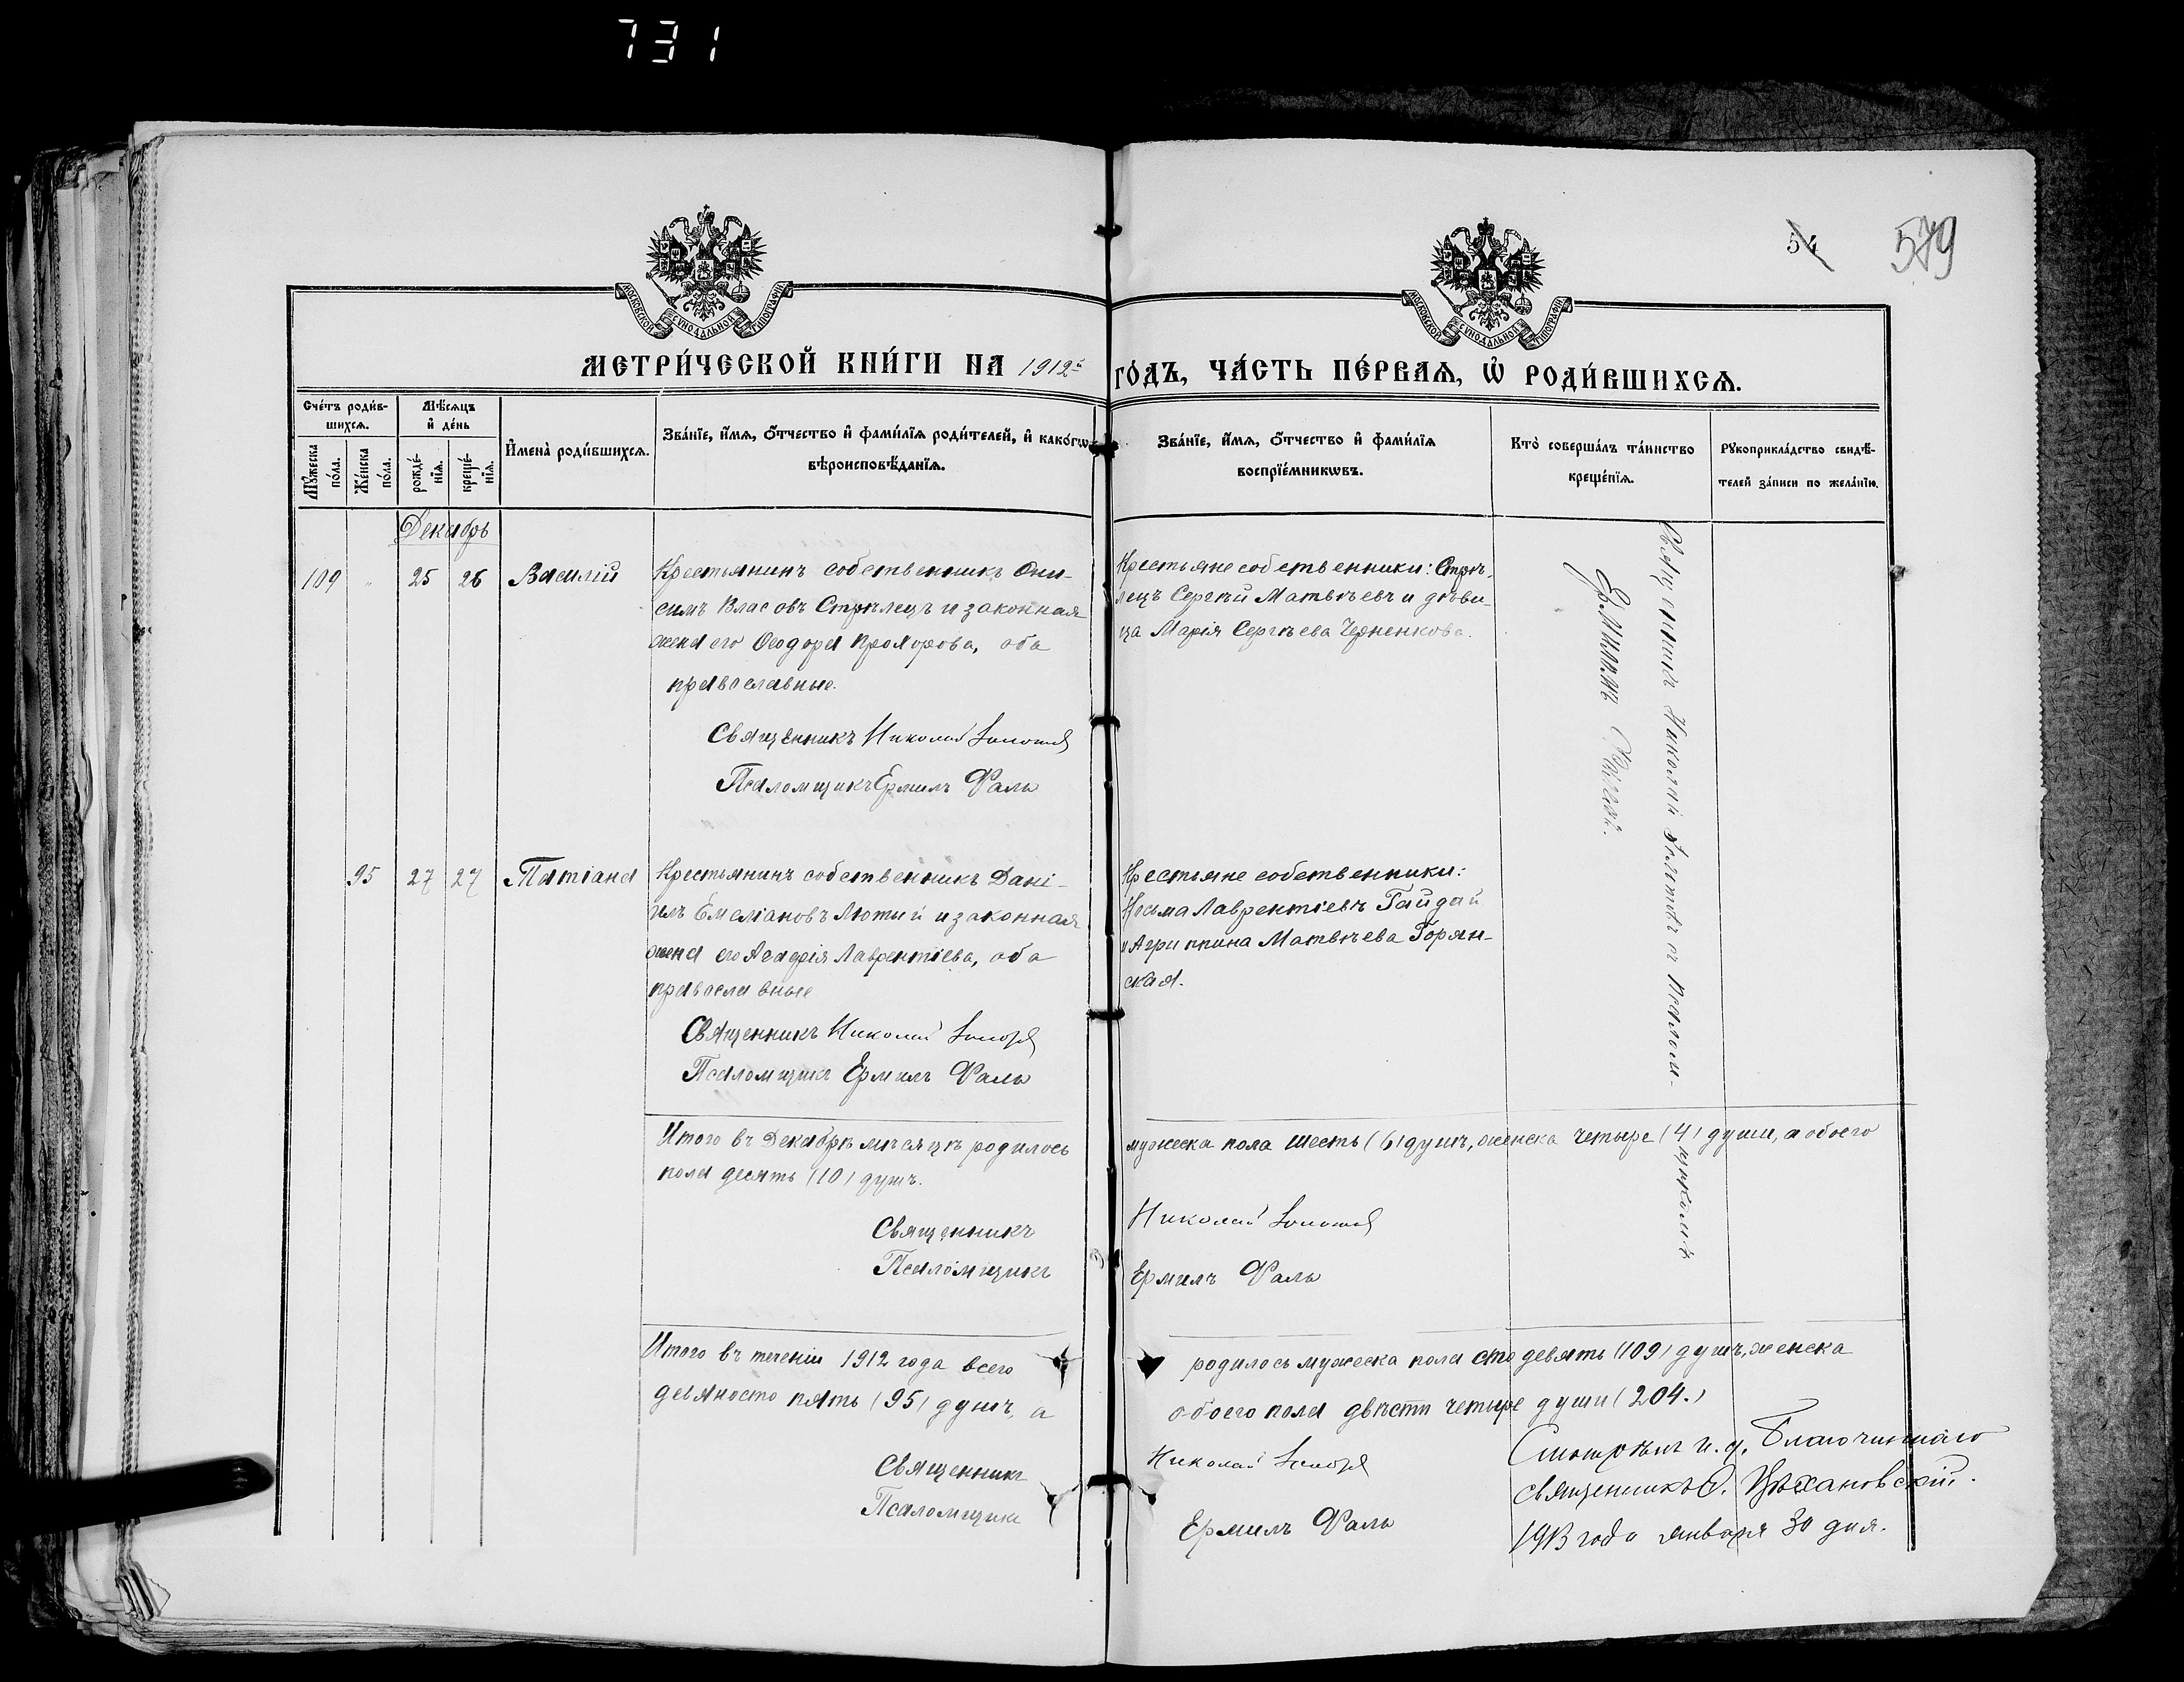 731
54
579
МОСКОВСКОЙ СѴНОДАЛЬНОЙ ТИПОГРАФІИ
МОСКОВСКОЙ СѴНОДАЛЬНОЙ ТИПОГРАФІИ
МЕТРИ́ЧЕСКОЙ КНИ́ГИ НА 1912й ГО́ДЪ, ЧА́СТЬ ПЕ́РВАѦ, Ѡ҆ РОДИ́ВШИХСѦ.
Сче́тъ роди́в-
шихсѧ.
Мꙋ́жеска по́ла.
Же́нска по́ла.
Мѣ́сѧцъ
и҆ де́нь
рожде́-
нїѧ.
креще́-
нїѧ.
И҆мена̀ роди́вшихсѧ.
Зва́нїе, и҆́мѧ, ѻ҆́тчество и҆ фами́лїѧ роди́телей, и҆ како́гѡ
вѣроисповѣ́данїѧ.
Зва́нїе, и҆́мѧ, ѻ҆́тчество и҆ фами́лїѧ
воспрїе́мникѡвъ.
Кто̀ соверша́лъ та́инство
креще́нїѧ.
Рꙋкоприкла́дство свидѣ́-
телей за́писи по жела́нїю.
Декабрь
109 " 25 26 Василій
Крестьянинъ собственникъ Они-
симъ Власовъ Стрѣлецъ и законная
жена его Ѳеодора Прохорова, оба
православные.
Священникъ Николай
Псаломщикъ Ермилъ Фаль
Крестьяне собственники: Стрѣ-
лецъ Сергѣй Матвѣевъ и дѣви-
ца Марія Сергѣева Черненкова.
Священникъ Николай съ Псалом-
щикомъ
Ермиломъ
95 27 27 Татіана
Крестьянинъ собственникъ Дані-
илъ Емеліановъ Лютый и законная
жена его Агафія Лаврентіева, оба
православные
Священникъ Николай
Псаломщикъ Ермилъ Фаль
Крестьяне собственники:
Косма Лаврентіевъ Гайдай
и Агриппина Матвѣева Горян-
ская.
Итого въ Декабрѣ мѣсяцѣ родилось мужеска пола шесть (6) душъ, женска четыре (4) души, а обоего
пола десять (10) душъ.
Священникъ Николай
Псаломщикъ Ермилъ Фаль
Итого въ теченіи 1912 года всего родилось мужеска пола сто девять (109) душъ, женска
девяносто пять (95) душъ, а обоего пола двѣсти четыре души (204.)
Священникъ Николай
Псаломщикъ Ермилъ Фаль
Смотрѣлъ и. д. Благочиннаго
священникъ Цѣхановскій.
1913 года января 30 дня.